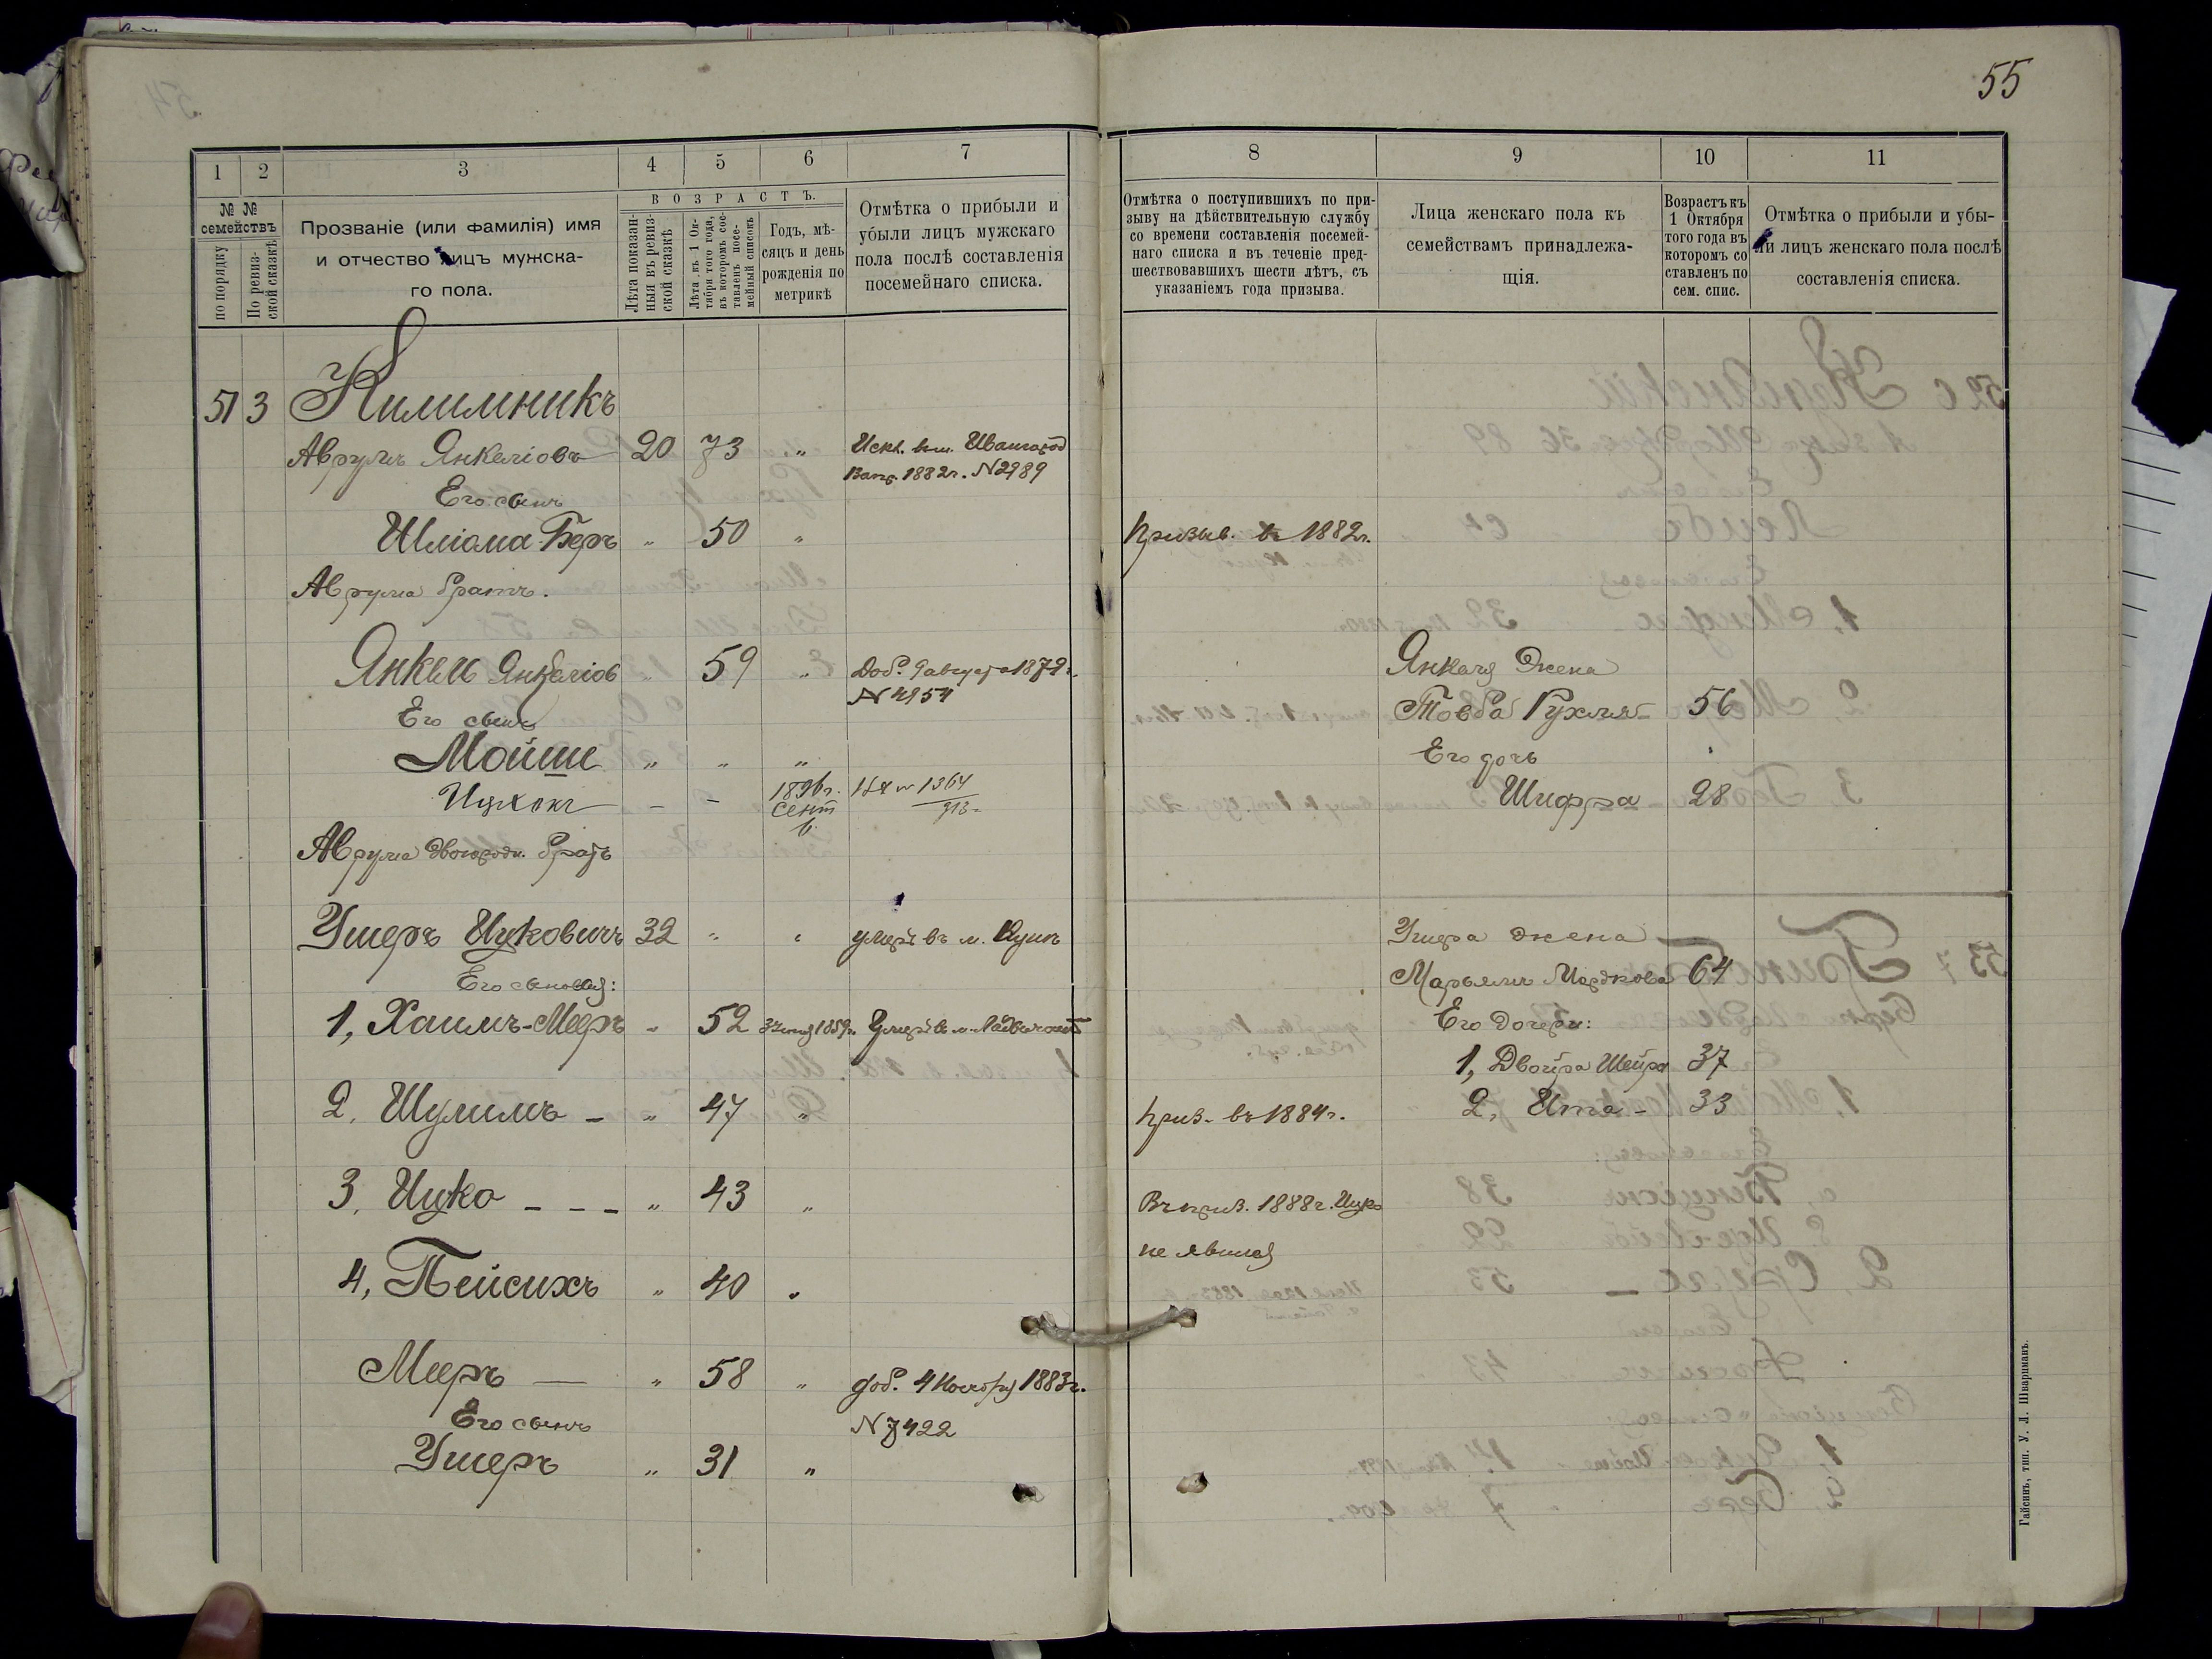 55
1 2 3 4 5 6 7
№ №
семействъ
по порядку
По ревиз-
ской сказкѣ
Прозваніе (или фамилія) имя
и отчество лицъ мужска-
го пола.
ВОЗРАСТЪ.
Лѣта показан-
ныя въ ревиз-
ской сказкѣ
Лѣта къ 1 Ок-
тября того года,
въ которомъ сос-
тавленъ посе-
мейный списокъ
Годъ, мѣ-
сяцъ и день
рожденія по
метрикѣ
Отмѣтка о прибыли и
убыли лицъ мужскаго
пола послѣ составленія
посемейнаго списка.
51 3 Килимникъ
Аврумъ Янкеліовъ 20 73 „ Искл.
1882г. №2989
Его сынъ
Шліома-Беръ „ 50 „
Аврума братъ.
Янкель Янкеліов „ 59 „ Доб. 9 августа 1879г.
№ 4954
Его сынъ
Мойше „ „ „
Ицхокъ – – 1896г. 1364
Сент 913
6.
Аврума двоюродн. братъ
Ушеръ Ицковичъ 32 „ „ умеръ въ м.
Его сыновья:
1, Хаимъ-Мееръ „ 52 1859г. Умеръ въ м.
2, Шулимъ – „ 47 „
3, Ицко – – – „ 43 „
4, Пейсихъ „ 40 „
Мееръ — „ 58 „ доб. 4 Ноября 1883г.
Его сынъ №7422
Ушеръ „ 31 „
8 9 10 11
Отмѣтка о поступившихъ по при-
зыву на дѣйствительную службу
со времени составленія посемей-
наго списка и въ теченіе пред-
шествовавшихъ шести лѣтъ, съ
указаніемъ года призыва.
Лица женскаго пола къ
семействамъ принадлежа-
щія.
Возрастъ къ
1 Октября
того года въ
которомъ со
ставленъ по
сем. спис.
Отмѣтка о прибыли и убы-
ли лицъ женскаго пола послѣ
составленія списка.
Призыв. въ 1882г.
Янкеля жена
Товба Рухля 56
Его дочь
Шифра 28
Ушера жена
Марьямъ Мордкова 64
Его дочери:
1, Двойра Шейра 37
Приз. въ 1884г. 2, Ита – 33
Въ приз. 1888г. Ицко
не явился
Гайсинъ, тип. У. Л. Шварцманъ.